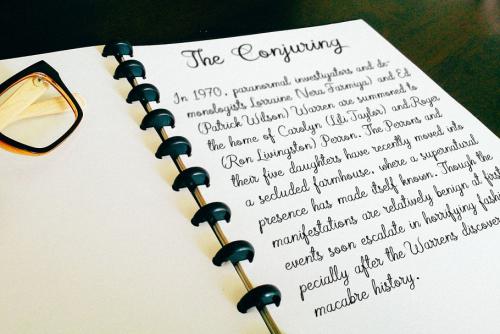 The Conjuring
In 1970, paranormal investigators and de-
monologists Lorraine (Vera Farmiga) and Ed
(Patrick Wilson) Warren are summoned to
the home of Carolyn (Lili Taylor) and Roger
(Ron Livingston) Perron. The Perrons and
their five daughters have recently moved into
a secluded farmhouse, where a supernatural
presence has made itself known. Though the
manifestations are relatively benign at first
events soon escalate in horrifying fashi
pecially after the Warrens discover
macabre history.